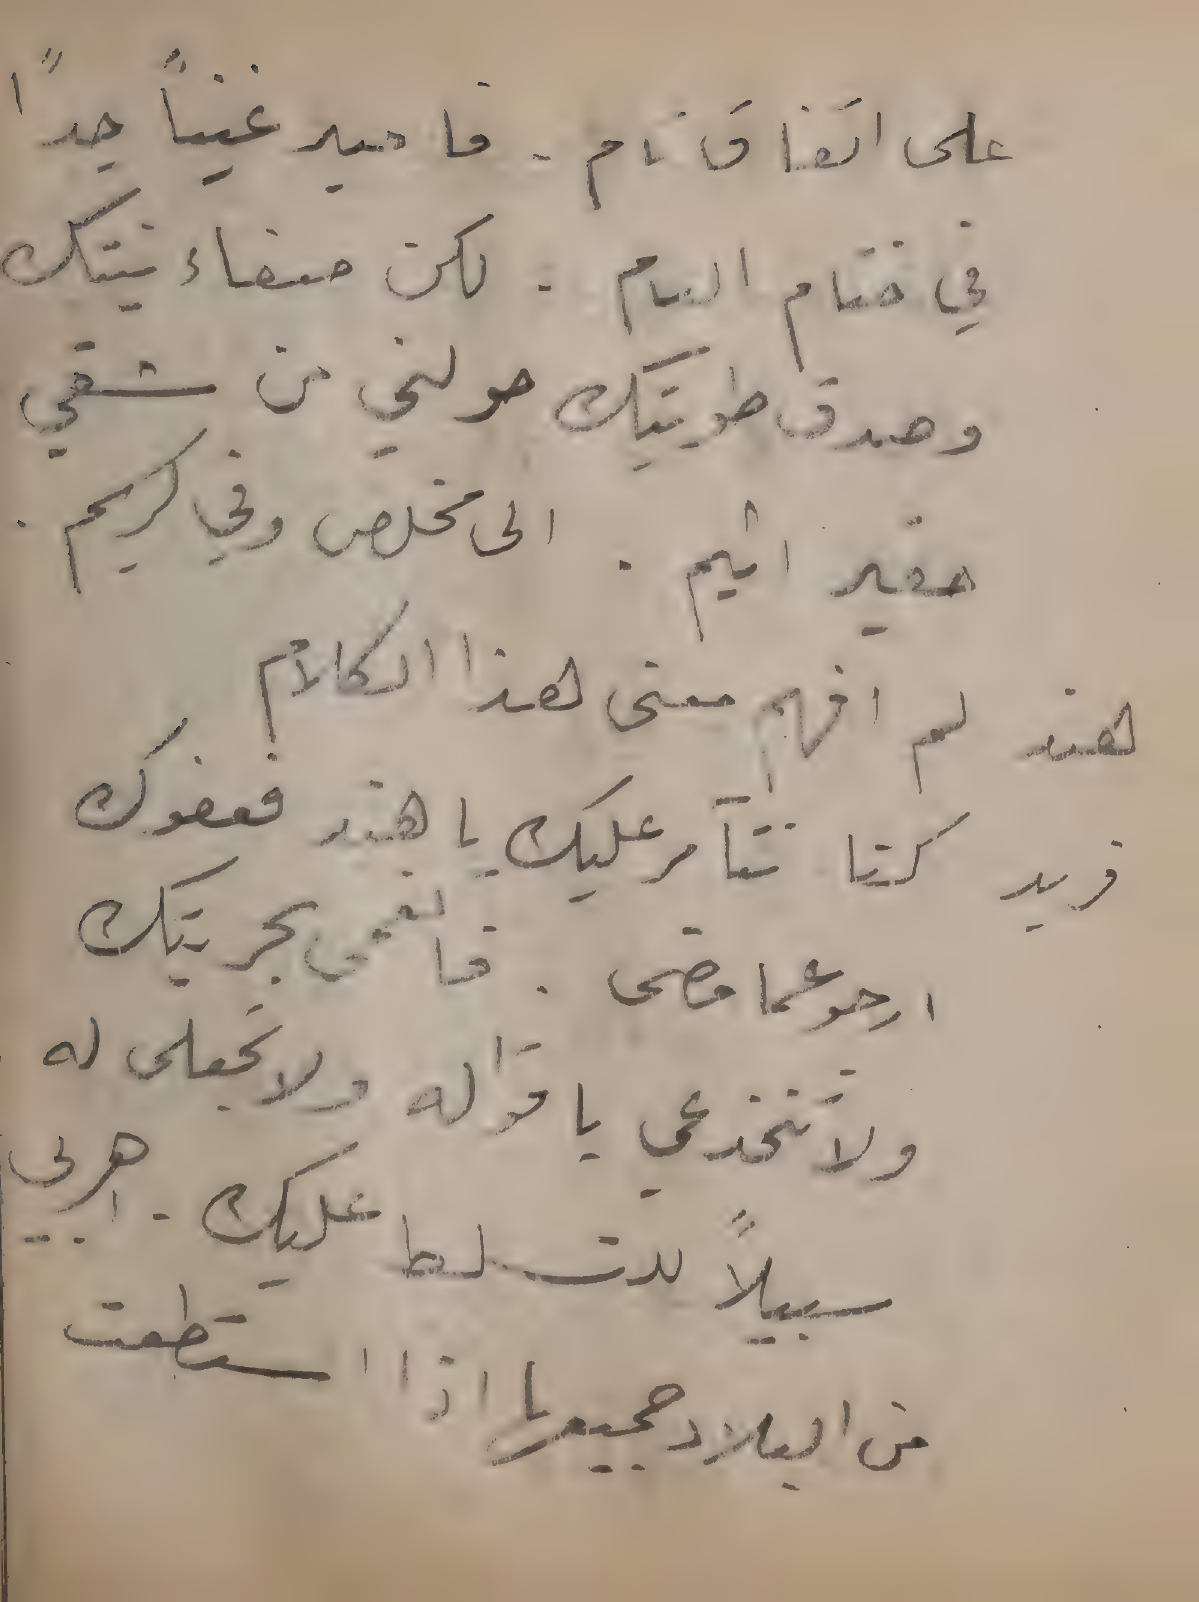 على اتفاق تام . فاصير غنياً جداً
في ختام العام . لكن صفاء نيتك
وصدق طويتك حولني من شقي
حقير اثيم . الى مخلص وفي كريم .
هند لم افهم معنى هذا الكلام
فريد كنا نتآمر عليك يا هند فعفوك
ارجو عما مضى . فانعمي بحريتك
ولا تنخدعي باقواله ولا تجعلي له
سبيلاً للتسلط عليك . اهربي
من البلاد جميعها اذا استطعت